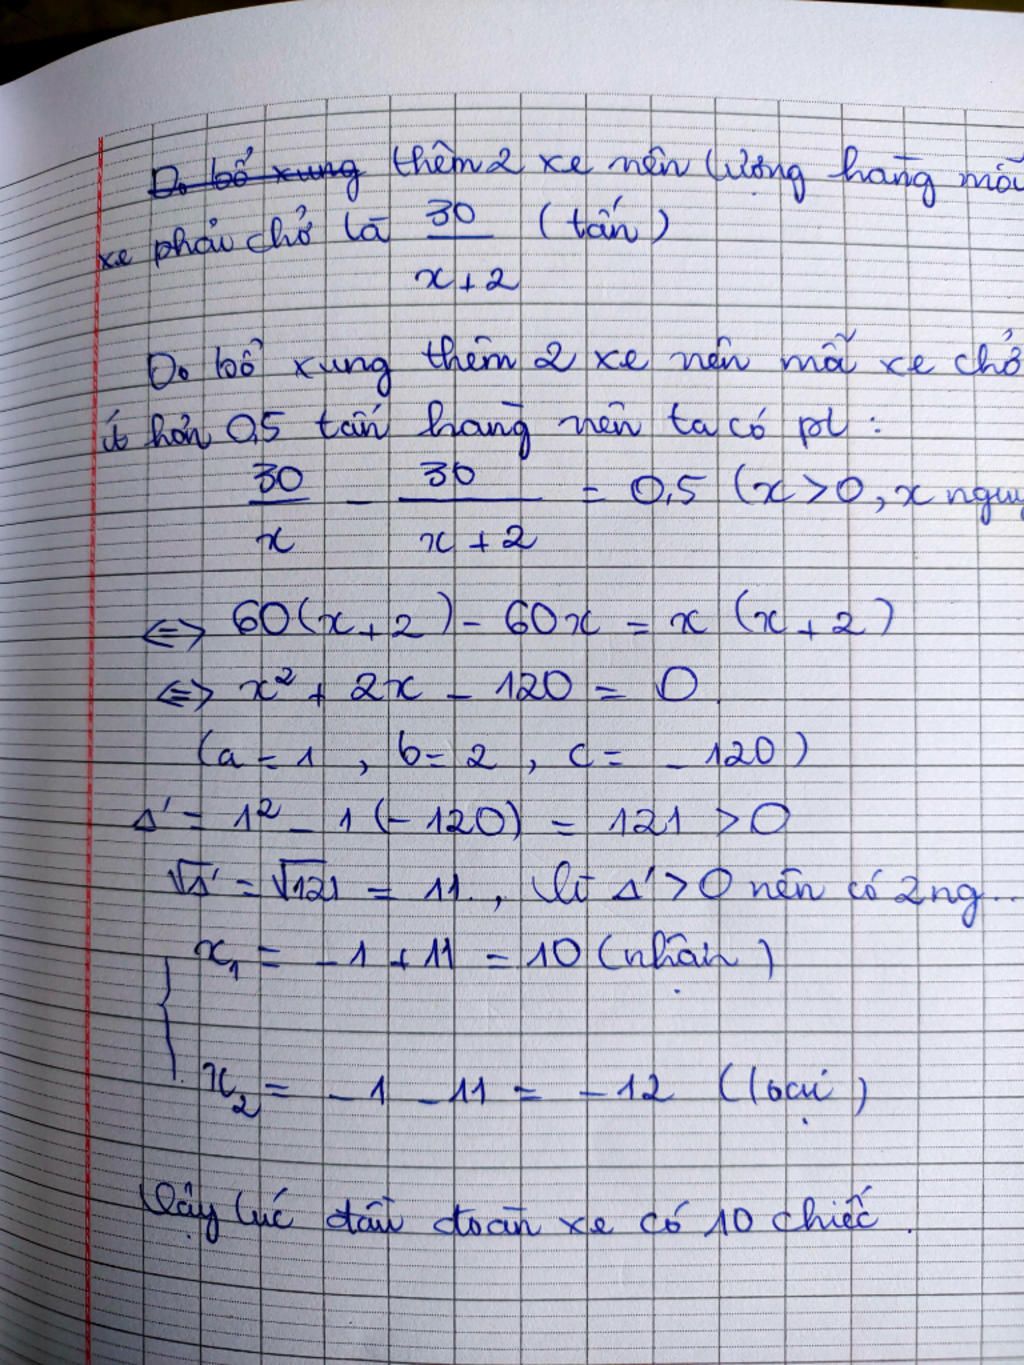 Do bổ xung thêm 2 xe nên lượng hàng mỗi
xe phải chở là 30/(x+2) (tấn)
Do bổ xung thêm 2 xe nên mỗi xe chở
ít hơn 0,5 tấn hàng nên ta có pt :
30/x - 30/(x+2) = 0,5 (x>0, x nguy
⇔ 60(x+2) - 60x = x (x+2)
⇔ x² + 2x - 120 = 0.
(a = 1 , b = 2 , c = - 120)
Δ' = 1² - 1 (-120) = 121 > 0
√Δ' = √121 = 11. , Vì Δ' > 0 nên có 2 ng...
x₁ = -1 + 11 = 10 (nhận)
x₂ = -1 - 11 = -12 (loại)
Vậy lúc đầu đoàn xe có 10 chiếc.